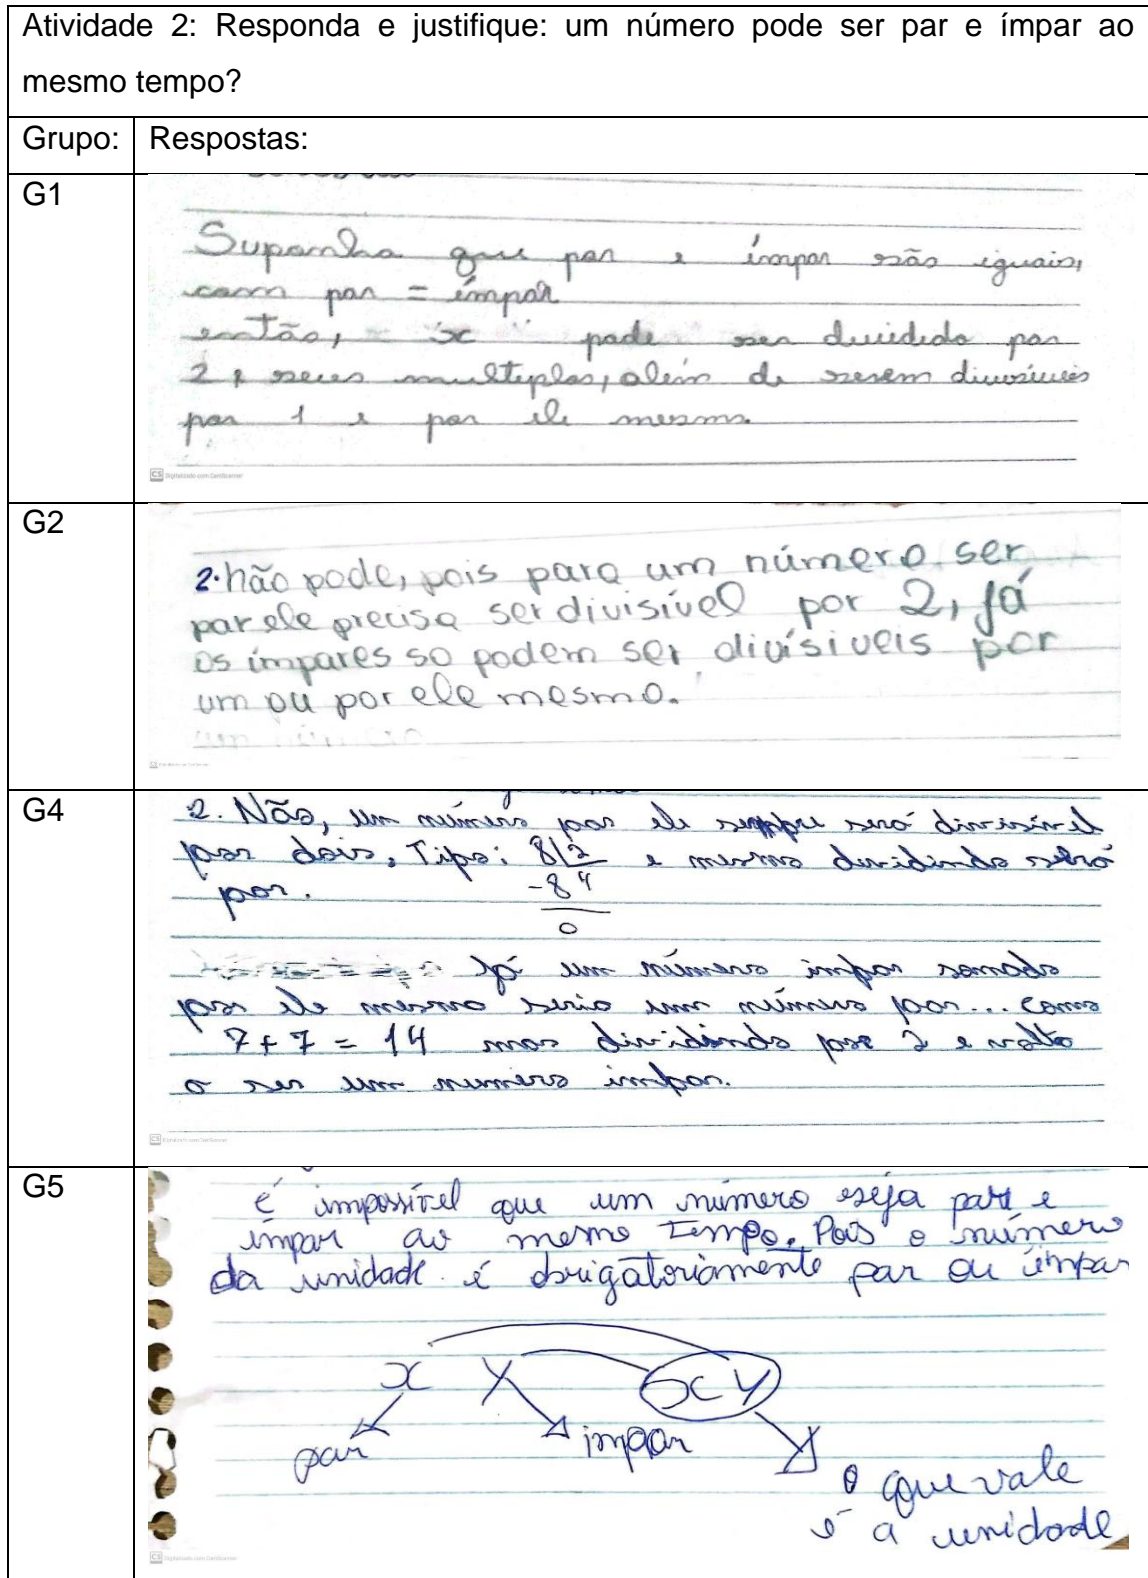 Atividade 2: Responda e justifique: um número pode ser par e ímpar ao
mesmo tempo?
Grupo: Respostas:
G1
Suponha que par e ímpar são iguais,
com par = ímpar
então, x pode ser dividido por
2 e seus multiplos, além de serem divisíveis
por 1 e por ele mesmo.
CS Digitalizado com CamScanner
G2
2. não pode, pois para um número ser
par ele precisa ser divisível por 2, já
os ímpares so podem ser divísiveis por
um ou por ele mesmo.
G4
2. Não, um número par ele sempre será divisível
por dois, Tipo: 8|2 e mesmo dividindo será
par. -8 4
0
Já um número impar somado
por ele mesmo seria um número par... como
7+7 = 14 mas dividindo por 2 e volta
a ser um numero impar.
CS
G5
é impossível que um número seja par e
impar ao mesmo tempo. Pois o número
da unidade é obrigatoriamente par ou ímpar
x y xy
par impar
o que vale
é a unidade
CS